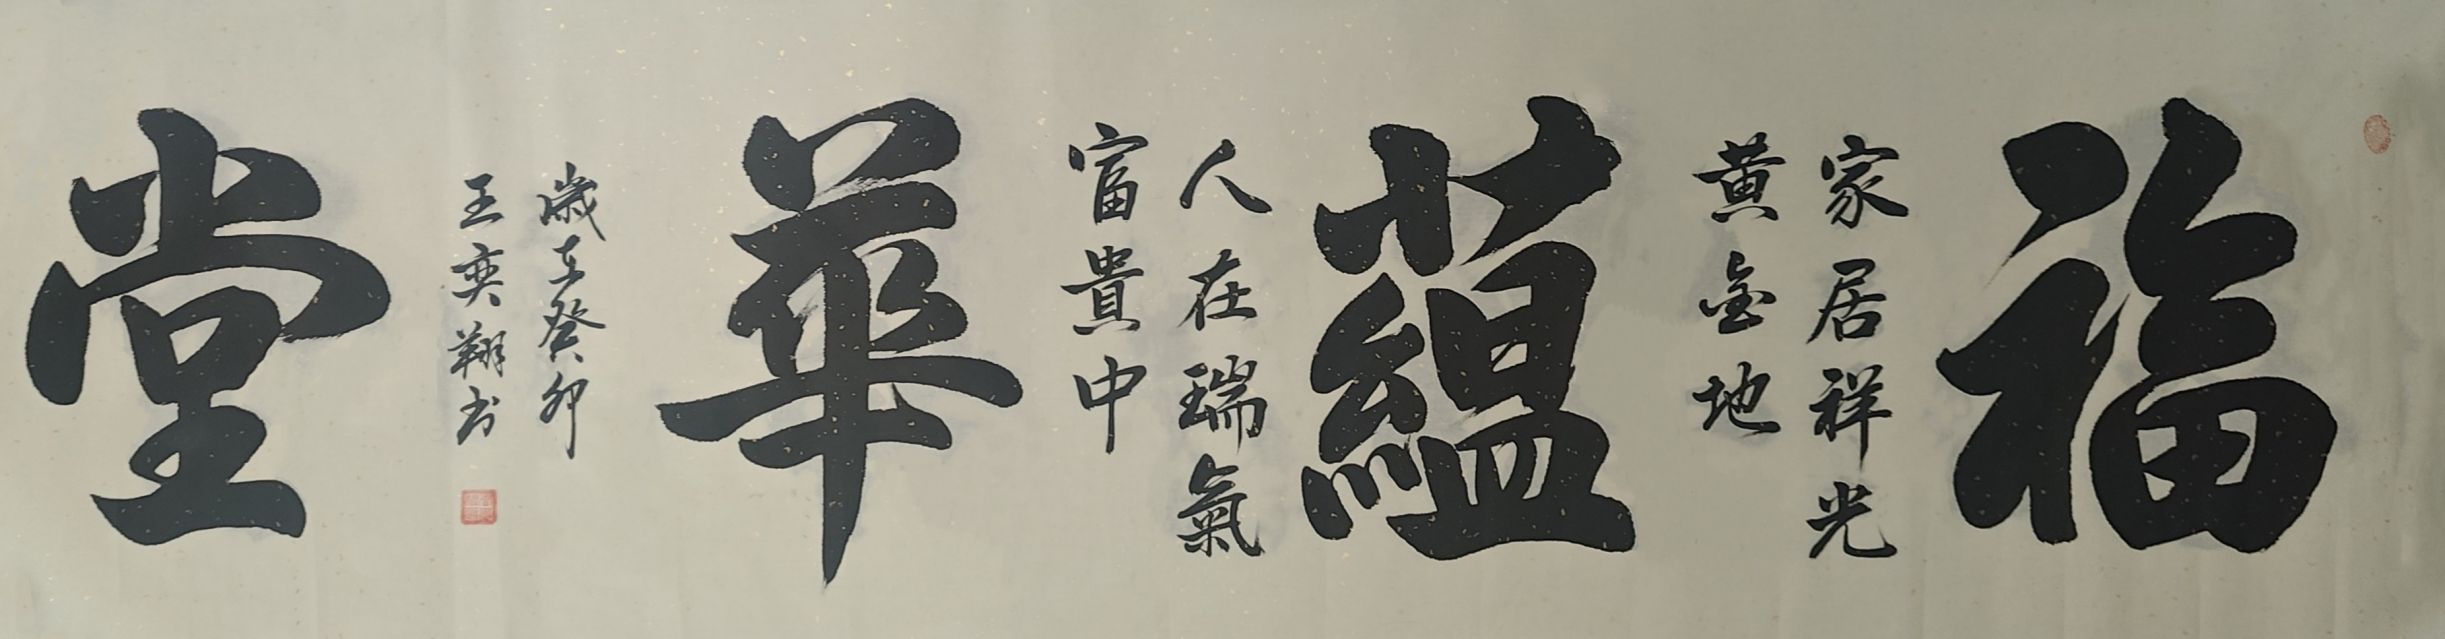 福
家居祥光
黄金地
蕴
人在瑞氣
富貴中
華
歲在癸卯
王奕翔书
堂